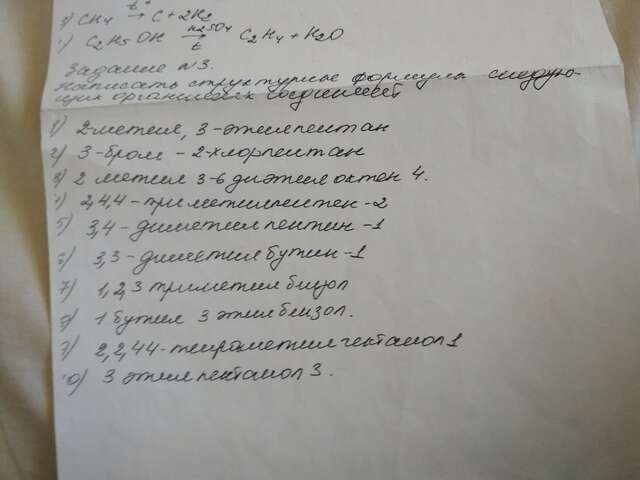 3) CH4 t°→ C + 2H2
C2H5OH H2SO4→ t C2H4 + H2O
Задание №3.
Написать структурные формулы следую-
щих органических соединений
1) 2-метил, 3-этилпентан
2) 3-бром - 2-хлорпентан
3) 2 метил 3-6 диэтил октен 4.
2,4,4-триметилпентен-2
5) 3,4-диметилпентин-1
6) 3,3-диметилбутин-1
7) 1,2,3 триметил
8) 1 бутил 3 этилбензол.
9) 2,2,44-тетраметилгептанол 1
10) 3 этилпентанол 3.